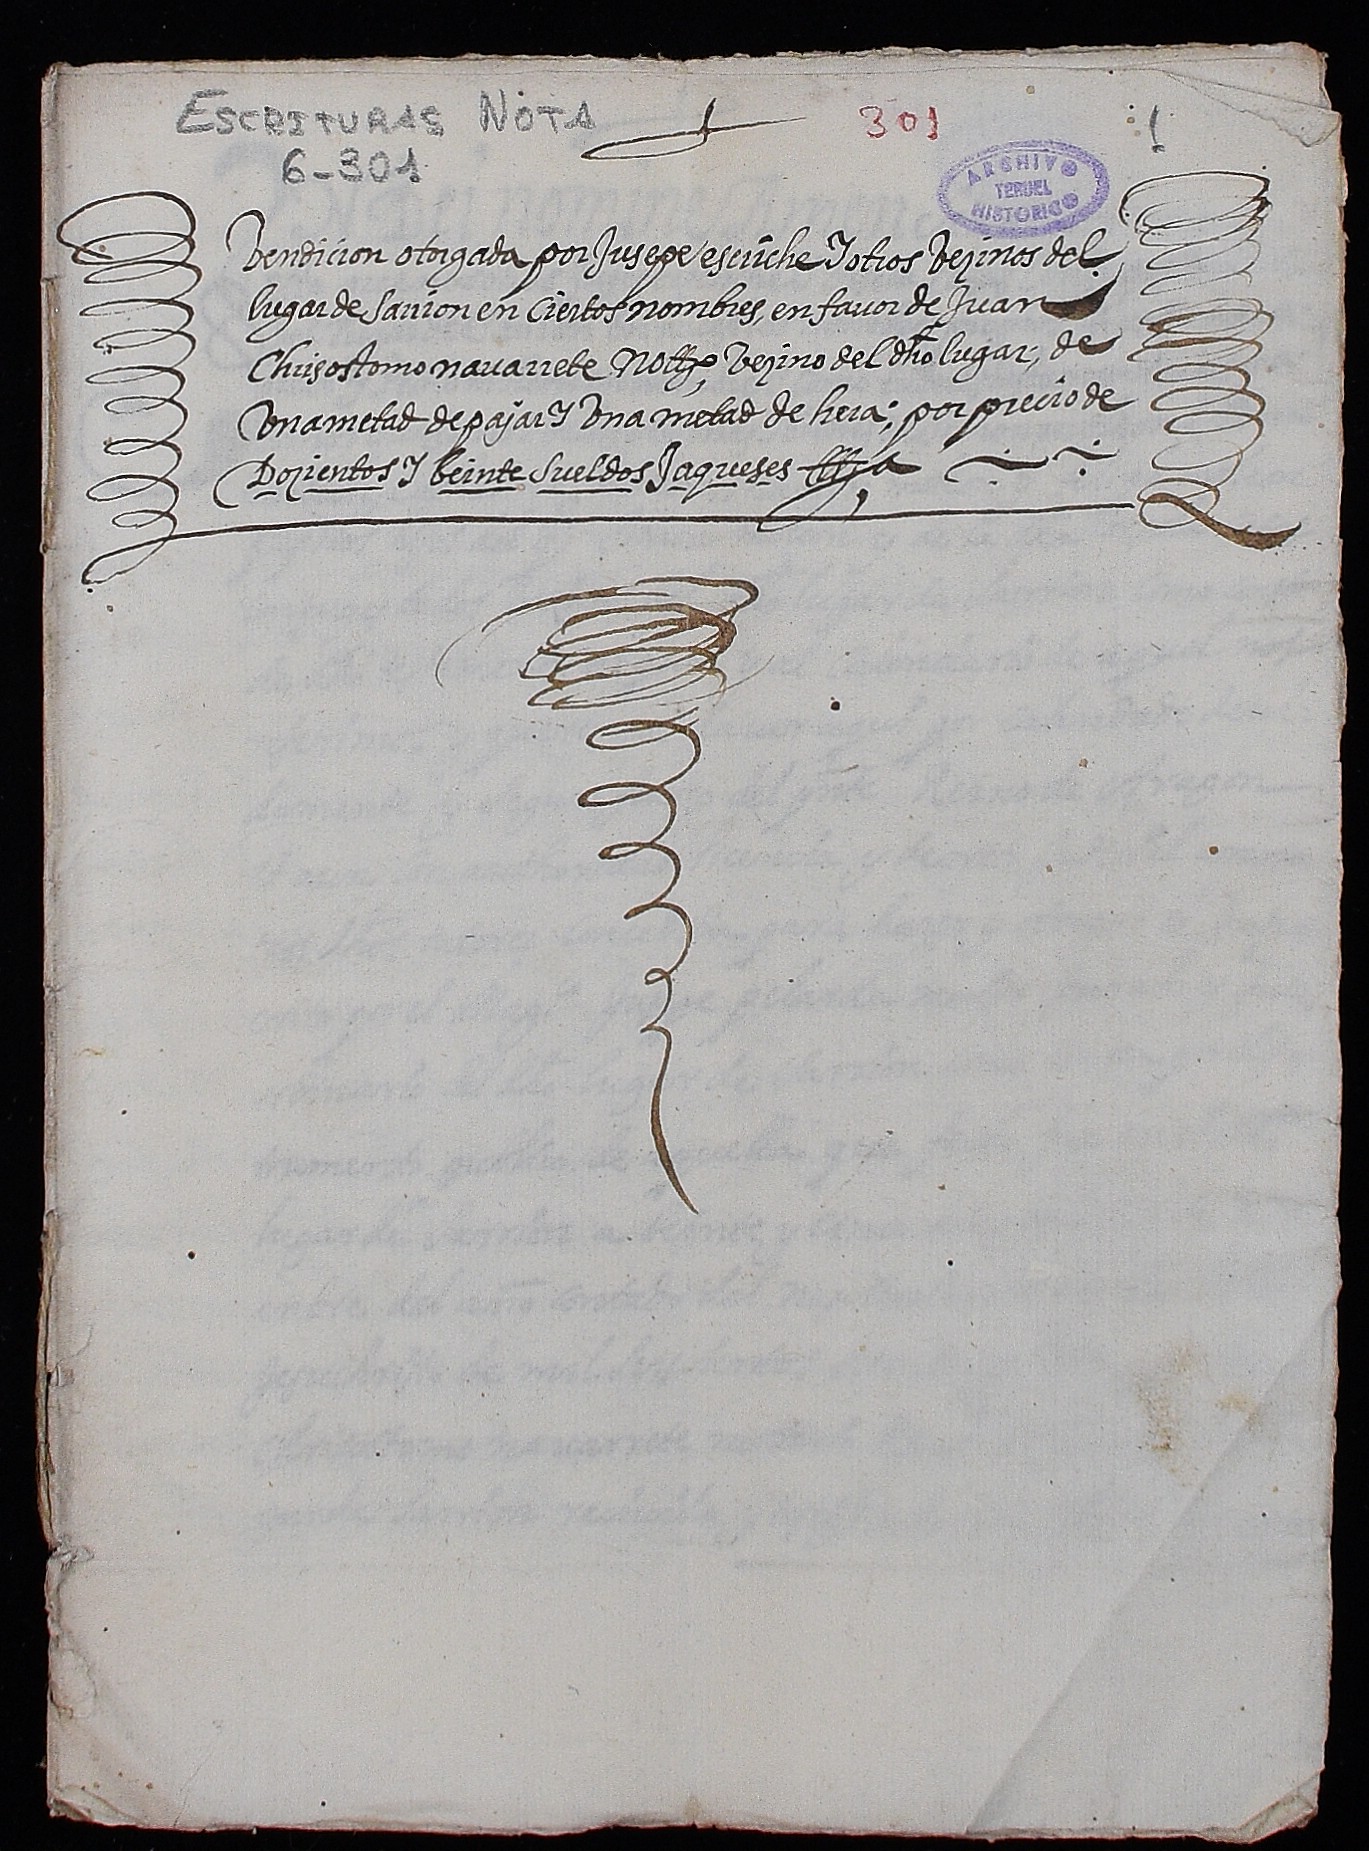 ESCRITURAS NOTA
6-301
301
ARCHIVO
TERUEL
HISTORICO
Vendicion otorgada por Jusepe escriche Y otros Vezinos del
lugar de Sarrion en Ciertos nombres, en fauor de Juan
Chrisostomo nauarrete Nottº, Vezino del dho lugar, de
Vna metad de pajar Y Vna metad de hera; por precio de
Dozientos Y beinte Sueldos Jaqueses